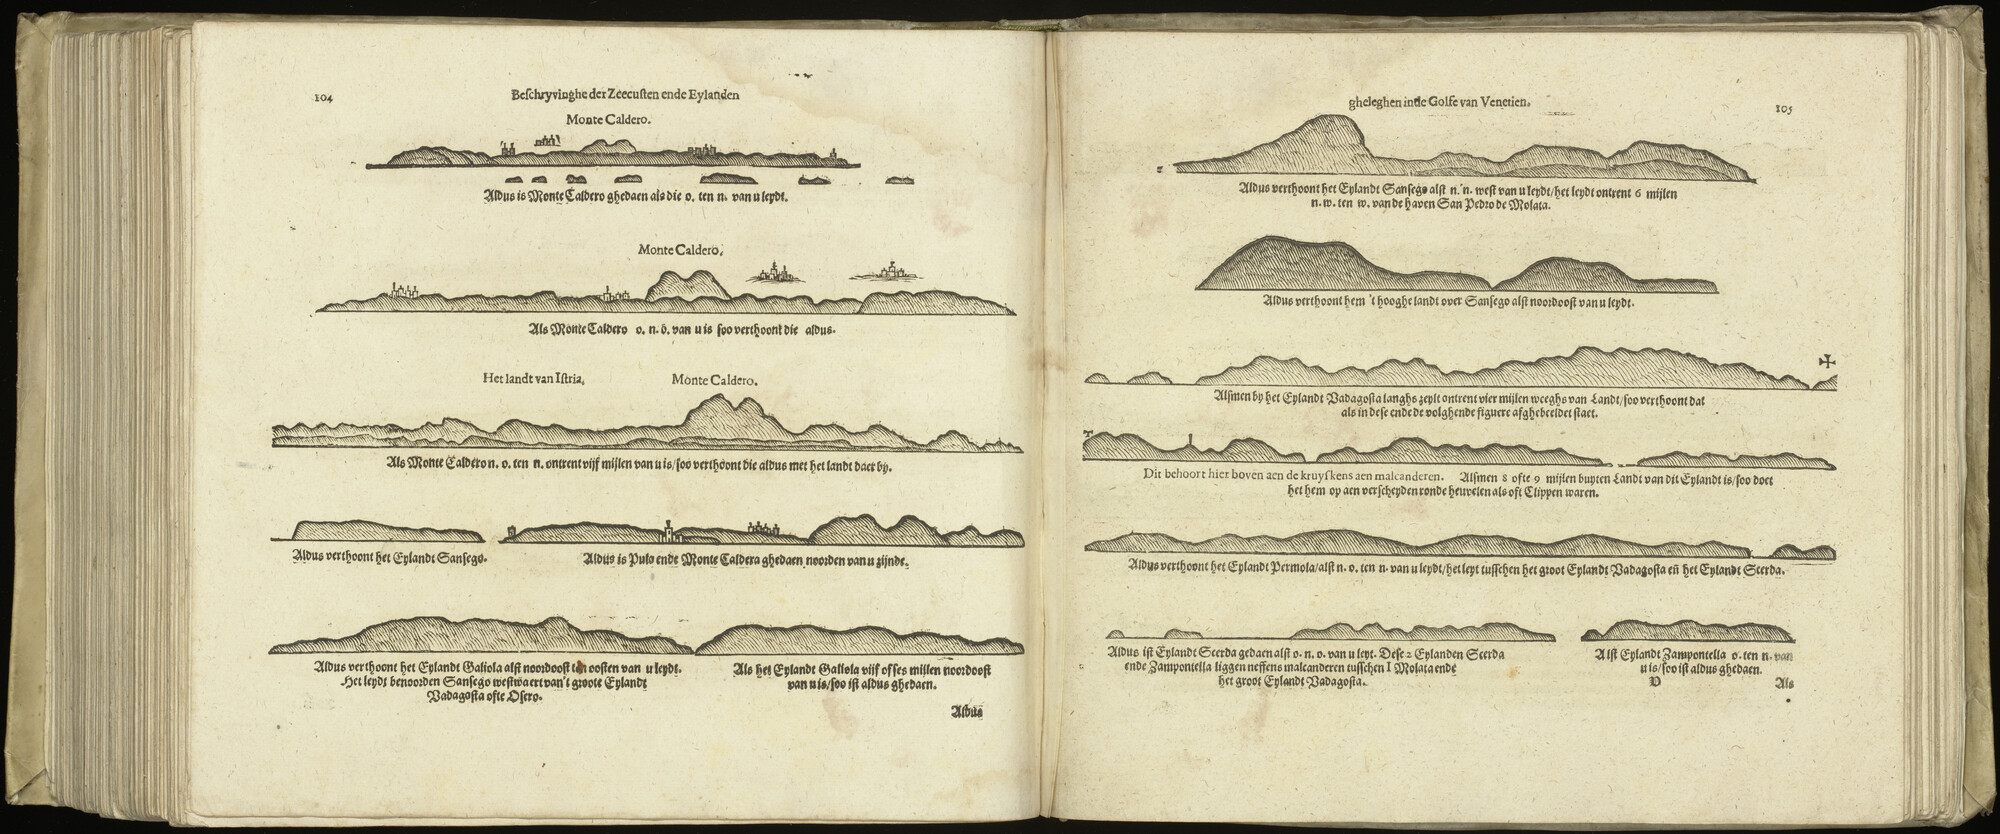 104
Beſchryvinghe der Zeecuſten ende Eylanden
Monte Caldero.
Aldus is Monte Caldero ghedaen als die o. ten n. van u leydt.
Monte Caldero.
Als Monte Caldero o. n. o. van u is ſoo verthoont die aldus.
Het landt van Iſtria. Monte Caldero.
Als Monte Caldero n. o. ten n. ontrent vijf mijlen van u is/ſoo verthoont die aldus met het landt daer by.
Aldus verthoont het Eylandt Sanſego.
Aldus is Pulo ende Monte Caldera ghedaen noorden van u zijnde.
Aldus verthoont het Eylandt Galiola alſt noordooſt ten ooſten van u leydt.
Het leydt benoorden Sanſego weſtwaert van't groote Eylandt
Vadagoſta ofte Oſero.
Als het Eylandt Galiola vijf of ſes mijlen noordooſt
van u is/ſoo iſt aldus ghedaen.
Aldus
gheleghen inde Golfe van Venetien.
105
Aldus verthoont het Eylandt Sanſego alſt n. n. weſt van u leydt/het leydt ontrent 6 mijlen
n. w. ten w. van de haven San Pedro de Molata.
Aldus verthoont hem 't hooghe landt over Sanſego alſt noordooſt van u leydt.
Alſmen by het Eylandt Vadagoſta langhs zeylt ontrent vier mijlen weeghs van Landt/ſoo verthoont dat
als in deſe ende de volghende figuere afghebeeldet ſtaet.
Dit behoort hier boven aen de kruyſkens aen malcanderen. Alſmen 8 ofte 9 mijlen buyten Landt van dit Eylandt is/ſoo doet
het hem op aen verſcheyden ronde heuvelen als oft Clippen waren.
Aldus verthoont het Eylandt Permola/alſt n. o. ten n. van u leydt/het leyt tuſſchen het groot Eylandt Vadagoſta eñ het Eylandt Scerda.
Aldus iſt Eylandt Scerda gedaen alſt o. n. o. van u leyt. Deſe 2 Eylanden Scerda
ende Zampontella liggen neffens malcanderen tuſſchen I Molata ende
het groot Eylandt Vadagoſta.
Alſt Eylandt Zampontella o. ten n. van
u is/ſoo iſt aldus ghedaen.
Als